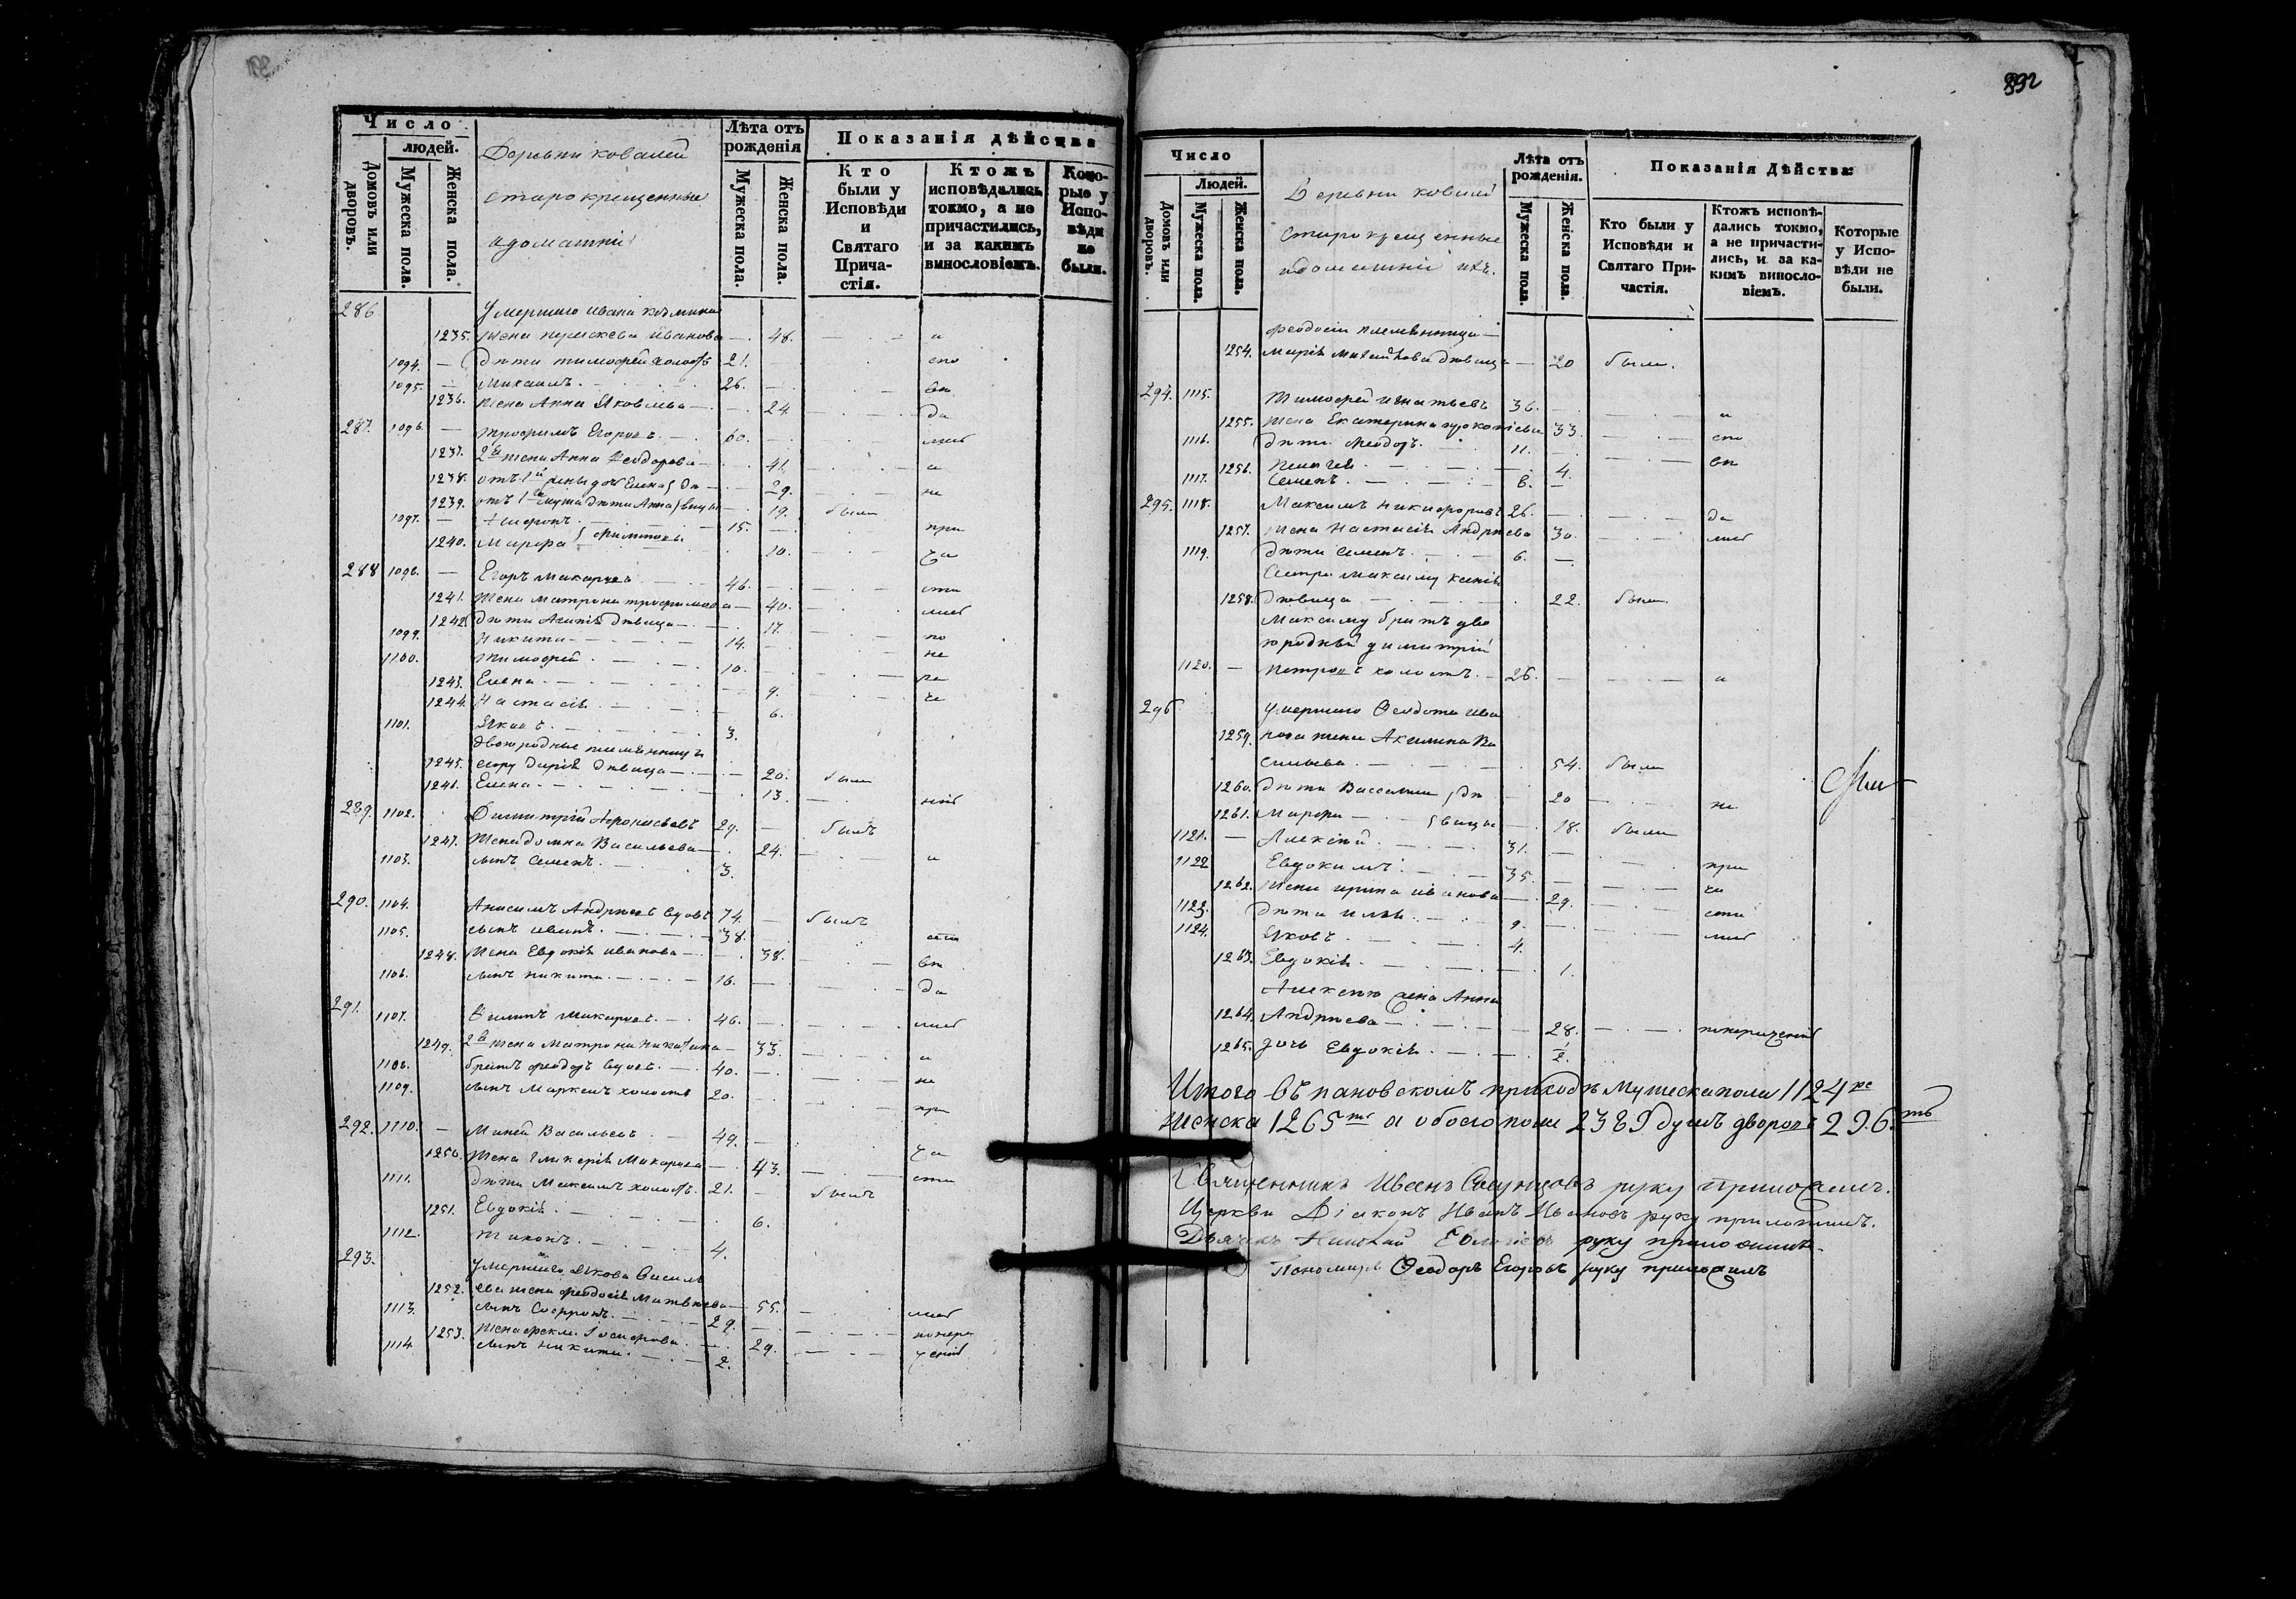 892
Число
людей.
Домовъ или дворовъ.
Мужеска пола.
Женска пола.
Деревни ковалей
старокрещенные
и домашнiи
Лѣта отъ рожденія
Мужеска пола.
Женска пола.
Показанія дѣйства
Кто были у Исповѣди и Святаго Причастія.
Ктожъ исповѣдались токмо, а не причастились, и за какимъ винословіемъ.
Которые у Исповѣди не были.
286 умершаго ивана
1235. жена ивановa — 48. и
1094. — дѣти тимофей холостъ 21. спо
1095. — Михаилъ 26. вѣ
1236. жена Анна Яковлева — 24. да
287. 1096. — трофимъ Егоровъ 60. лис
1237. 2я жена Анна Феодорова — 41. и
1238. отъ 1й жены дочь Елена дѣ — 29. не
1239. отъ 1го мужа дѣти Анна вицы — 19. были
1097. — 15. при
1240. Марфа 10. ча
288 1098. — Егоръ Макаровъ 46. сти
1241. Жена матрона трофимова — 40. лис
1242. дѣти дѣвица — 17. по
1099. Никита 14. не
1100. тимофей 10. ра
1243. Елена 9. че
1244. Настасiя 6.
1101. Яковъ 3.
двоюродные племянницы
1245. егору дарiя дѣвица — 20. были
1246. Елена 13. нiю
289. 1102. Димитрiй 29. былъ
1247. Жена домна Васильева — 24. и
1103. сынъ Семенъ 3.
290. 1104. Анисимъ Андреевъ вдовъ 74. былъ
1105. сынъ иванъ 38.
1248. Жена Евдокiя иванова — 38. вѣ
1106. сынъ никита 16. да
291. 1107. Филипъ Макаровъ 46. лис
1249. 2я жена Матрона никитина — 33. и
1108. братъ феодоръ вдовъ 40. не
1109. сынъ Маркелъ холостъ 20. при
292. 1110. — Миней Васильевъ 49. ча
1250. Жена гликерiя Макарова — 43. сти
1111. дѣти Максимъ холостъ 21. былъ
1251. Евдокiя 6.
1112. тихонъ 4.
293. умершаго Якова Василь
1252. ева жена феодосiя Матвѣева — 55. лис
1113. сынъ Софронъ 29. понере
1253. жена фекла 29. ченiю
1114. сынъ никита 2.
Число
Людей.
Домовъ или дворовъ.
Мужеска пола.
Женска пола.
Деревни ковалей
старокрещенные
и домашнiи ихъ.
Лѣта отъ рожденія.
Мужеска пола.
Женска пола.
Показанія Дѣйства
Кто были у Исповѣди и Святаго Причастія.
Ктожъ исповѣдались токмо, а не причастились, и за какимъ винословіемъ.
Которые у Исповѣди не были.
феодосiи племянница
1254. марiя Михайлова дѣвица — 20 были.
294. 1115. Тимофей игнатьевъ 36.
1255. жена Екатерина прокопiева 33 и
1116. дѣти феодоръ 11. спо
1256. Пелагея 4. вѣ
1117. Семенъ 8.
295. 1118. Максимъ никифоровъ 26. да
1257. жена Настасiя Андреева 30. лис
1119. дѣти семенъ 6.
Сестра максиму
1258. дѣвица 22. были
Максиму братъ дво
юродный димитрiй
1120. — петровъ холостъ. 26. и
296 умершаго Феодота ива
1259. нова жена Акилина Ва
сильева 54. были
1260. дѣти Вассилиса дѣ 20 не
1261. Марфа вицы 18. были
1121. — Алексiй 31.
1122 Евдокимъ 35. при
1262. жена ирина иванова — 29. ча
1123. дѣти илья 9. сти
1124. Яковъ 4. лис
1263. Евдокiя 1.
Алексiю жена Анна
1264. Андреева 28. понереченiю
1265. дочь Евдокiя 1/2.
Итого въ пановскомъ приходѣ Мужеска пола 1124ре
женска 1265ть а обоего пола 2389 душъ дворовъ 296ть
Священникъ Иванъ руку приложилъ.
Церкви Дiаконъ Иванъ Ивановъ руку приложилъ.
Дьячекъ Николай руку приложилъ.
Пономарь Феодоръ Егоровъ руку приложилъ